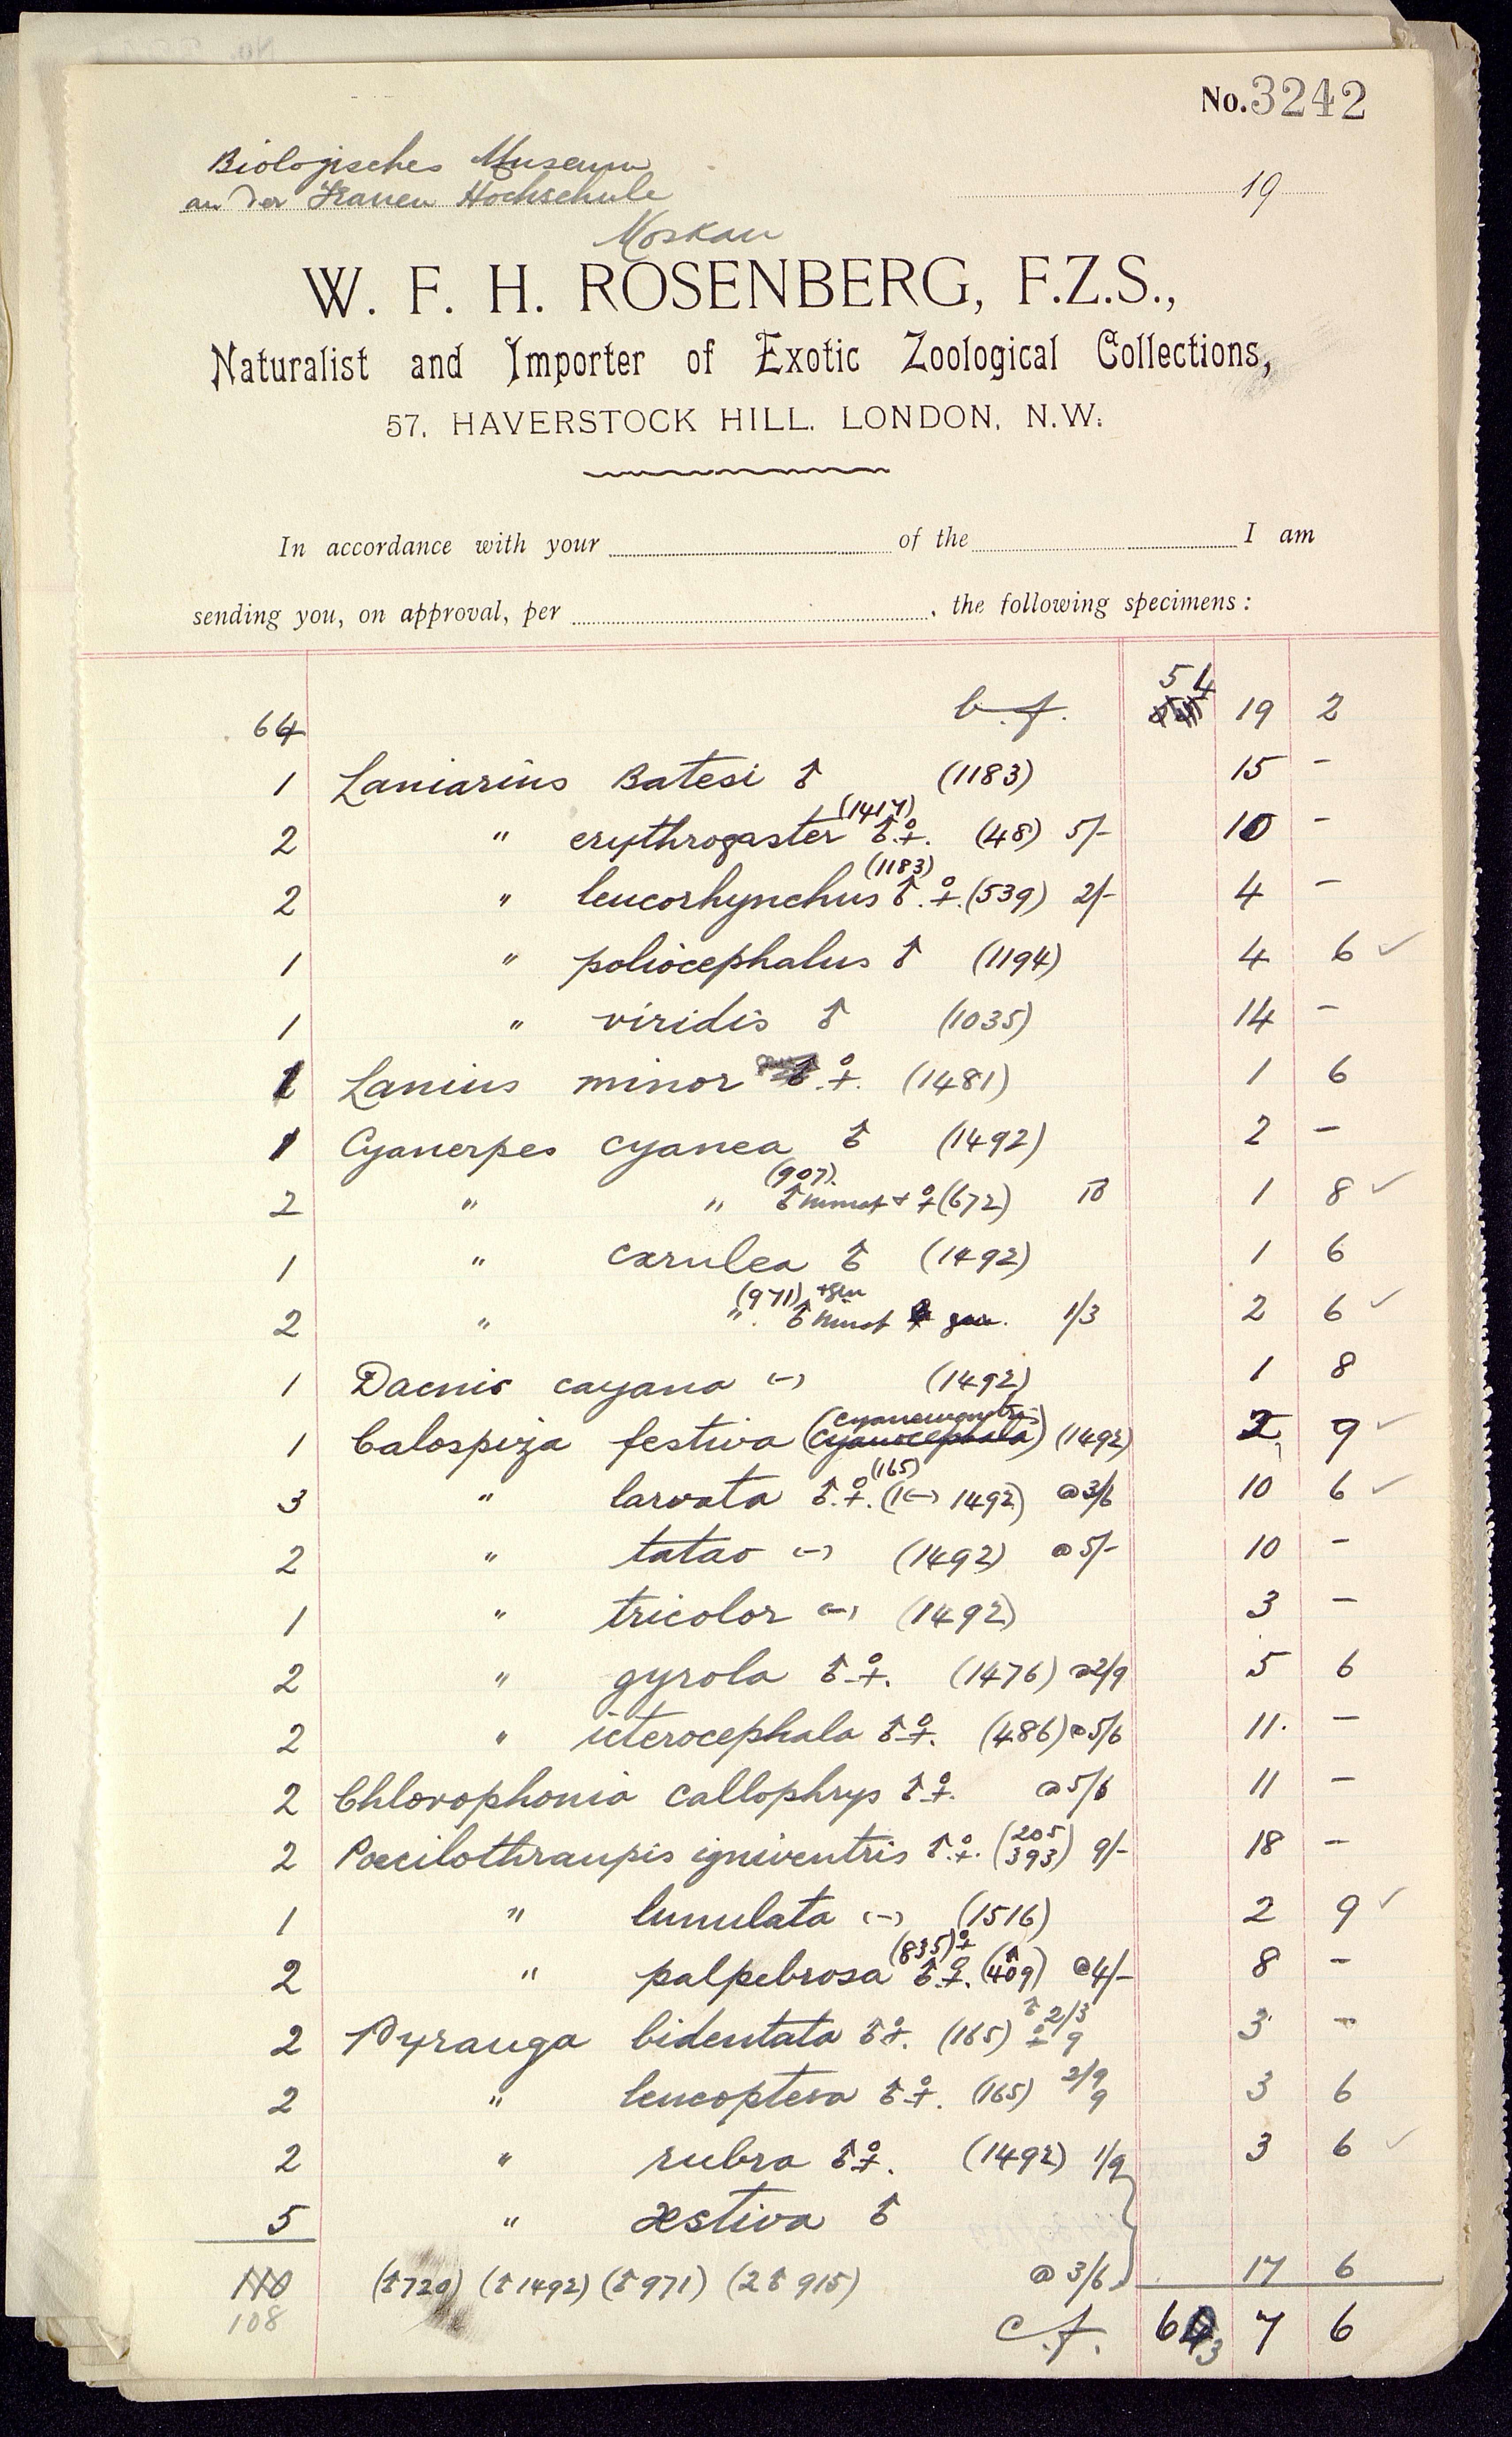 No. 3242
Biologisches Museum
an der Frauen Hochschule
19
Moskau
W. F. H. ROSENBERG, F.Z.S.,
Naturalist and Importer of Exotic Zoological Collections,
57, HAVERSTOCK HILL, LONDON, N.W.
In accordance with your of the I am
sending you, on approval, per , the following specimens:
64 b.f. 54 19 2
1 Laniarius Batesi ♂ (1183) 15 -
2 " erythrogaster (1417) ♂.♀. (48) 5/- 10 -
2 " leucorhynchus (1183) ♂.♀. (539) 2/- 4 -
1 " poliocephalus ♂ (1194) 4 6 ✓
1 " viridis ♂ (1035) 14 -
1 Lanius minor ♀. (1481) 1 6
1 Cyanerpes cyanea ♂ (1492) 2 -
2 " " (907) ♂ immat + ♀ (672) 10 1 8 ✓
1 " cærulea ♂ (1492) 1 6
2 " " (971) ♂ immat 1/3 2 6 ✓
1 Dacnis cayana (-) (1492) 1 8
1 Calospiza festiva (cyanocephala) (1492) 2 9 ✓
3 " larvata ♂.♀. (165) (1(-) 1492) @3/6 10 6 ✓
2 " tatao (-) (1492) @5/- 10 -
1 " tricolor (-) (1492) 3 -
2 " gyrola ♂♀. (1476) @2/9 5 6
2 " icterocephala ♂♀. (486) @5/6 11. -
2 Chlorophonia callophrys ♂♀. @5/6 11 -
2 Poecilothraupis igniventris ♂.♀. (205 393) 9/- 18 -
1 " lunulata (-) (1516) 2 9 ✓
2 " palpebrosa (835)♀ ♂.♀. (♂ 409) @4/- 8 -
2 Pyranga bidentata ♂♀. (165) ♂ 2/3 ♀ 9 3 -
2 " leucoptera ♂♀. (165) 2/9 9 3 6
2 " rubra ♂♀. (1492) 1/9 3 6 ✓
5 " æstiva ♂
110 (♂720) (♂1492) (♂971) (2♂ 915) @ 3/6 17 6
108 c.f. 63 7 6